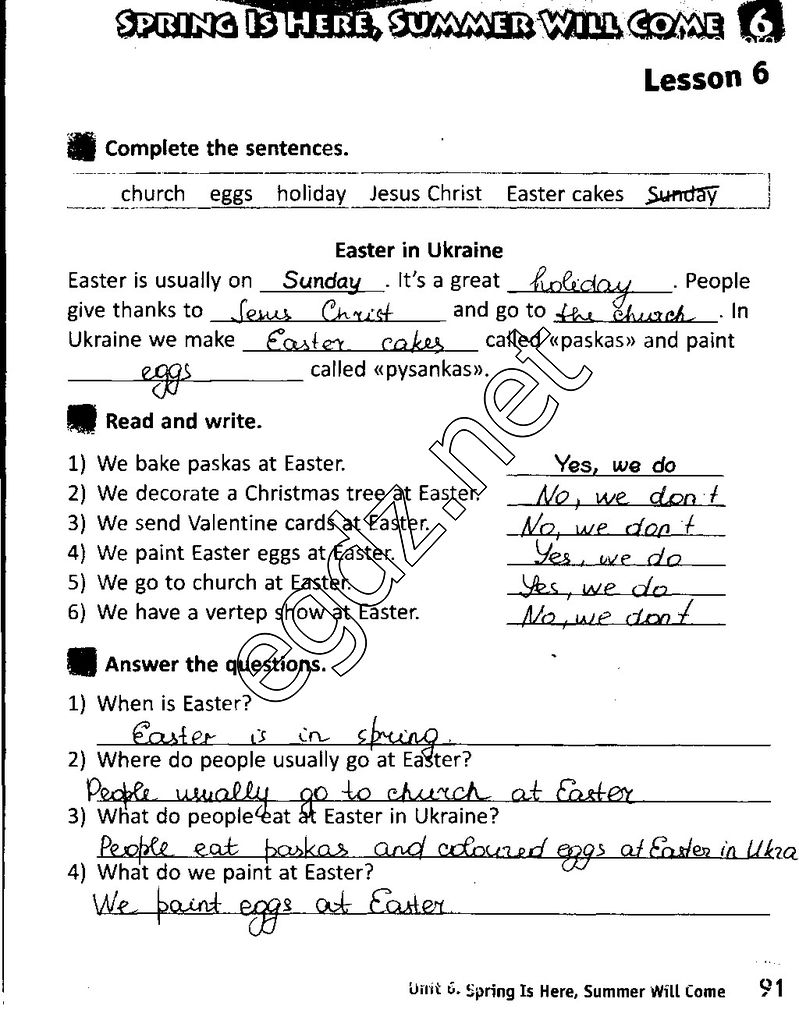 SPRING IS HERE, SUMMER WILL COME 6
Lesson 6
Complete the sentences.
church eggs holiday Jesus Christ Easter cakes Sunday
Easter in Ukraine
Easter is usually on Sunday. It's a great holiday. People
give thanks to Jesus Christ and go to the church. In
Ukraine we make Easter cakes called «paskas» and paint
eggs called «pysankas».
Read and write.
1) We bake paskas at Easter. Yes, we do
2) We decorate a Christmas tree at Easter. No, we don't
3) We send Valentine cards at Easter. No, we don't
4) We paint Easter eggs at Easter. Yes, we do
5) We go to church at Easter. Yes, we do
6) We have a vertep show at Easter. No, we don't
Answer the questions.
1) When is Easter?
Easter is in spring.
2) Where do people usually go at Easter?
People usually go to church at Easter
3) What do people eat at Easter in Ukraine?
People eat paskas and coloured eggs at Easter in Ukra
4) What do we paint at Easter?
We paint eggs at Easter
egdz.net
Unit 6. Spring Is Here, Summer Will Come 91